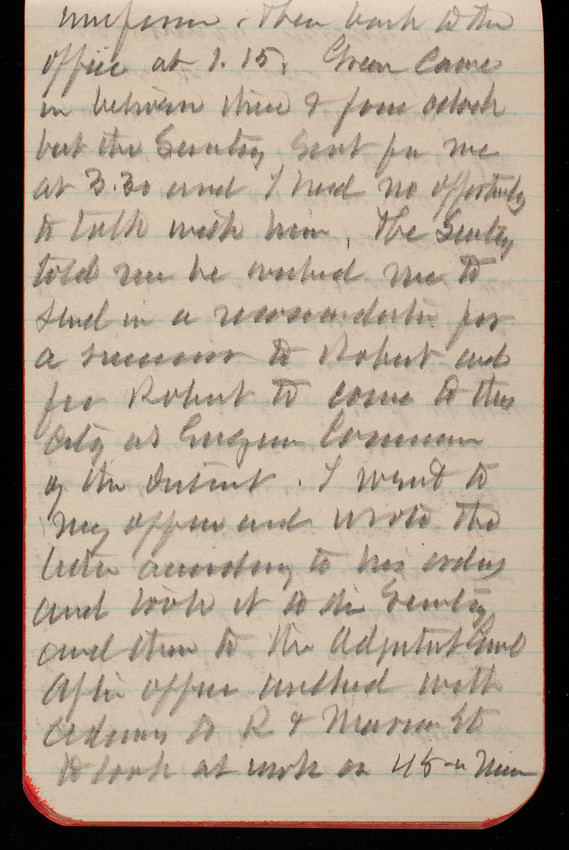 uniform. Then back to the
office at 1.15. Green came
in between three & four oclock
but the Secretary sent for me
at 3.30 and I had no opportunity
to talk with him. The Secretary
told me he wished me to
send in a recommendation for
a successor to Robert and
for Robert to come to this
City as Engineer Commissioner
of the District. I went to
my office and wrote the
letter according to his orders
and took it to the Secretary
and then to the Adjutant Genl
After office walked with
to R &
to look at work on 4 5